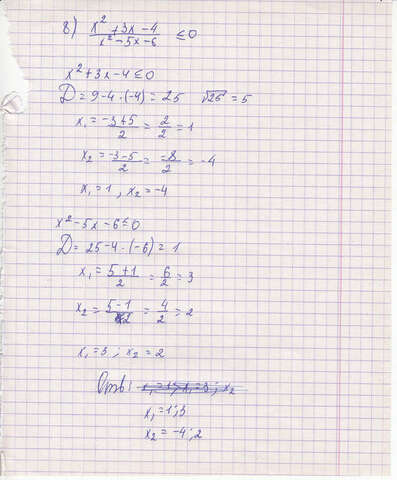 8) (x² + 3x - 4)/(x² - 5x - 6) ≤ 0
x² + 3x - 4 ≤ 0
D = 9 - 4 · (-4) = 25 √25 = 5
x₁ = (-3+5)/2 = 2/2 = 1
x₂ = (-3-5)/2 = -8/2 = -4
x₁ = 1, x₂ = -4
x² - 5x - 6 ≤ 0
D = 25 - 4 · (-6) = 1
x₁ = (5+1)/2 = 6/2 = 3
x₂ = (5-1)/2 = 4/2 = 2
x₁ = 3; x₂ = 2
Отв:
x₁ = 1; 3
x₂ = -4; 2